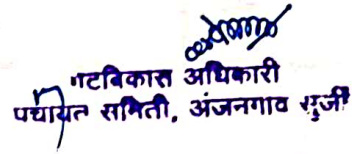 गटविकास अधिकारी
पंचायत समिती, अंजनगाव सुर्जी